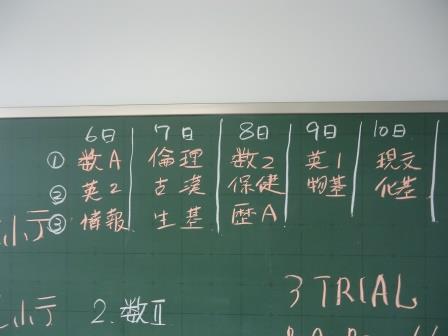 6日 7日 8日 9日 10日
① 数A 倫理 数2 英1 現文
② 英2 古漢 保健 物基 化基
③ 情報 生基 歴A
小テ
小テ
2.数Ⅱ
3 TRIAL